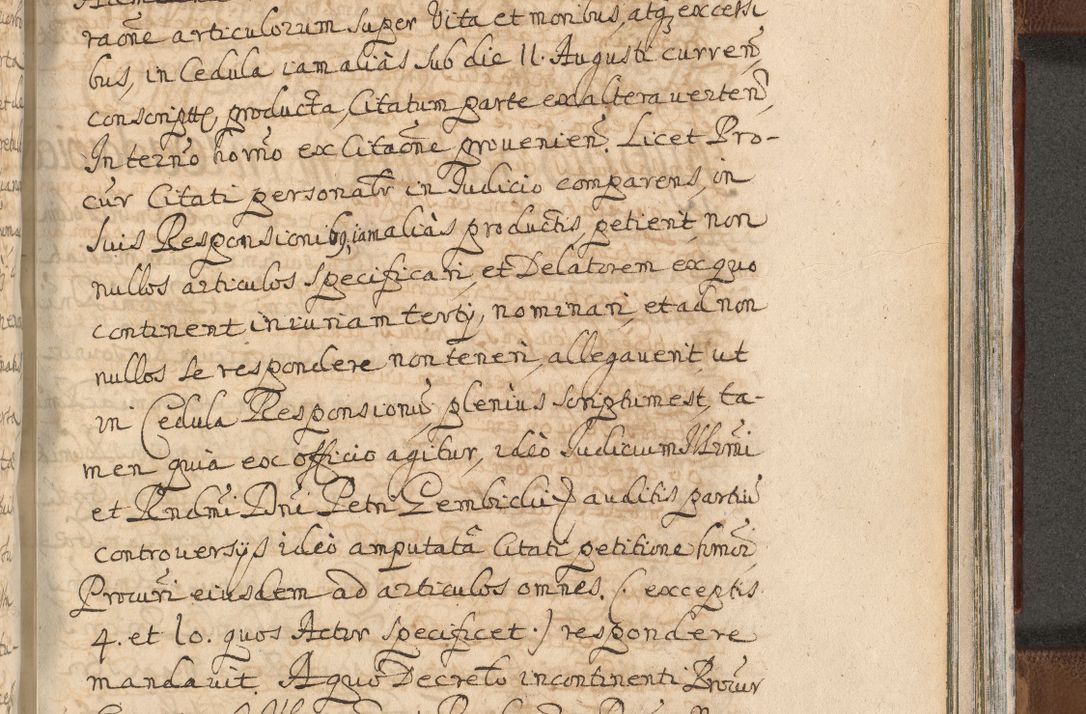 raõne articulorum super Vita et moribus, atq₃ excessi
bus, in Cedula iam aliàs sub die 11. Augusti curren̄,
conscriptt, producta, Citatum parte ex altera verten̄,
In termo horno ex Citaõne provenien̄. Licet Pro-
cur Citati personalr in Judicio comparens, in
suis Responsionibq, iam aliàs productis, petierit non
nullos articulos specificari, et Delatorem ex quo
continent iniuriam tertij, nominari, et ad non
nullos se respondere non teneri, allegaverit, ut
in Cedula Responsionū, plenius scriptum est, ta-
men quia ex officio agitur, ideò Judicium Illrmi
et Rndmi Dni Petri Gembicki) auditis partiū
controversijs ideò amputatâ Citati petitione hmõi
Procuri eiusdem ad articulos omnes. (. exceptis
4. et 10. quos Actor specificet .) respondere
mandavit. A quo Decreto incontinenti Procur